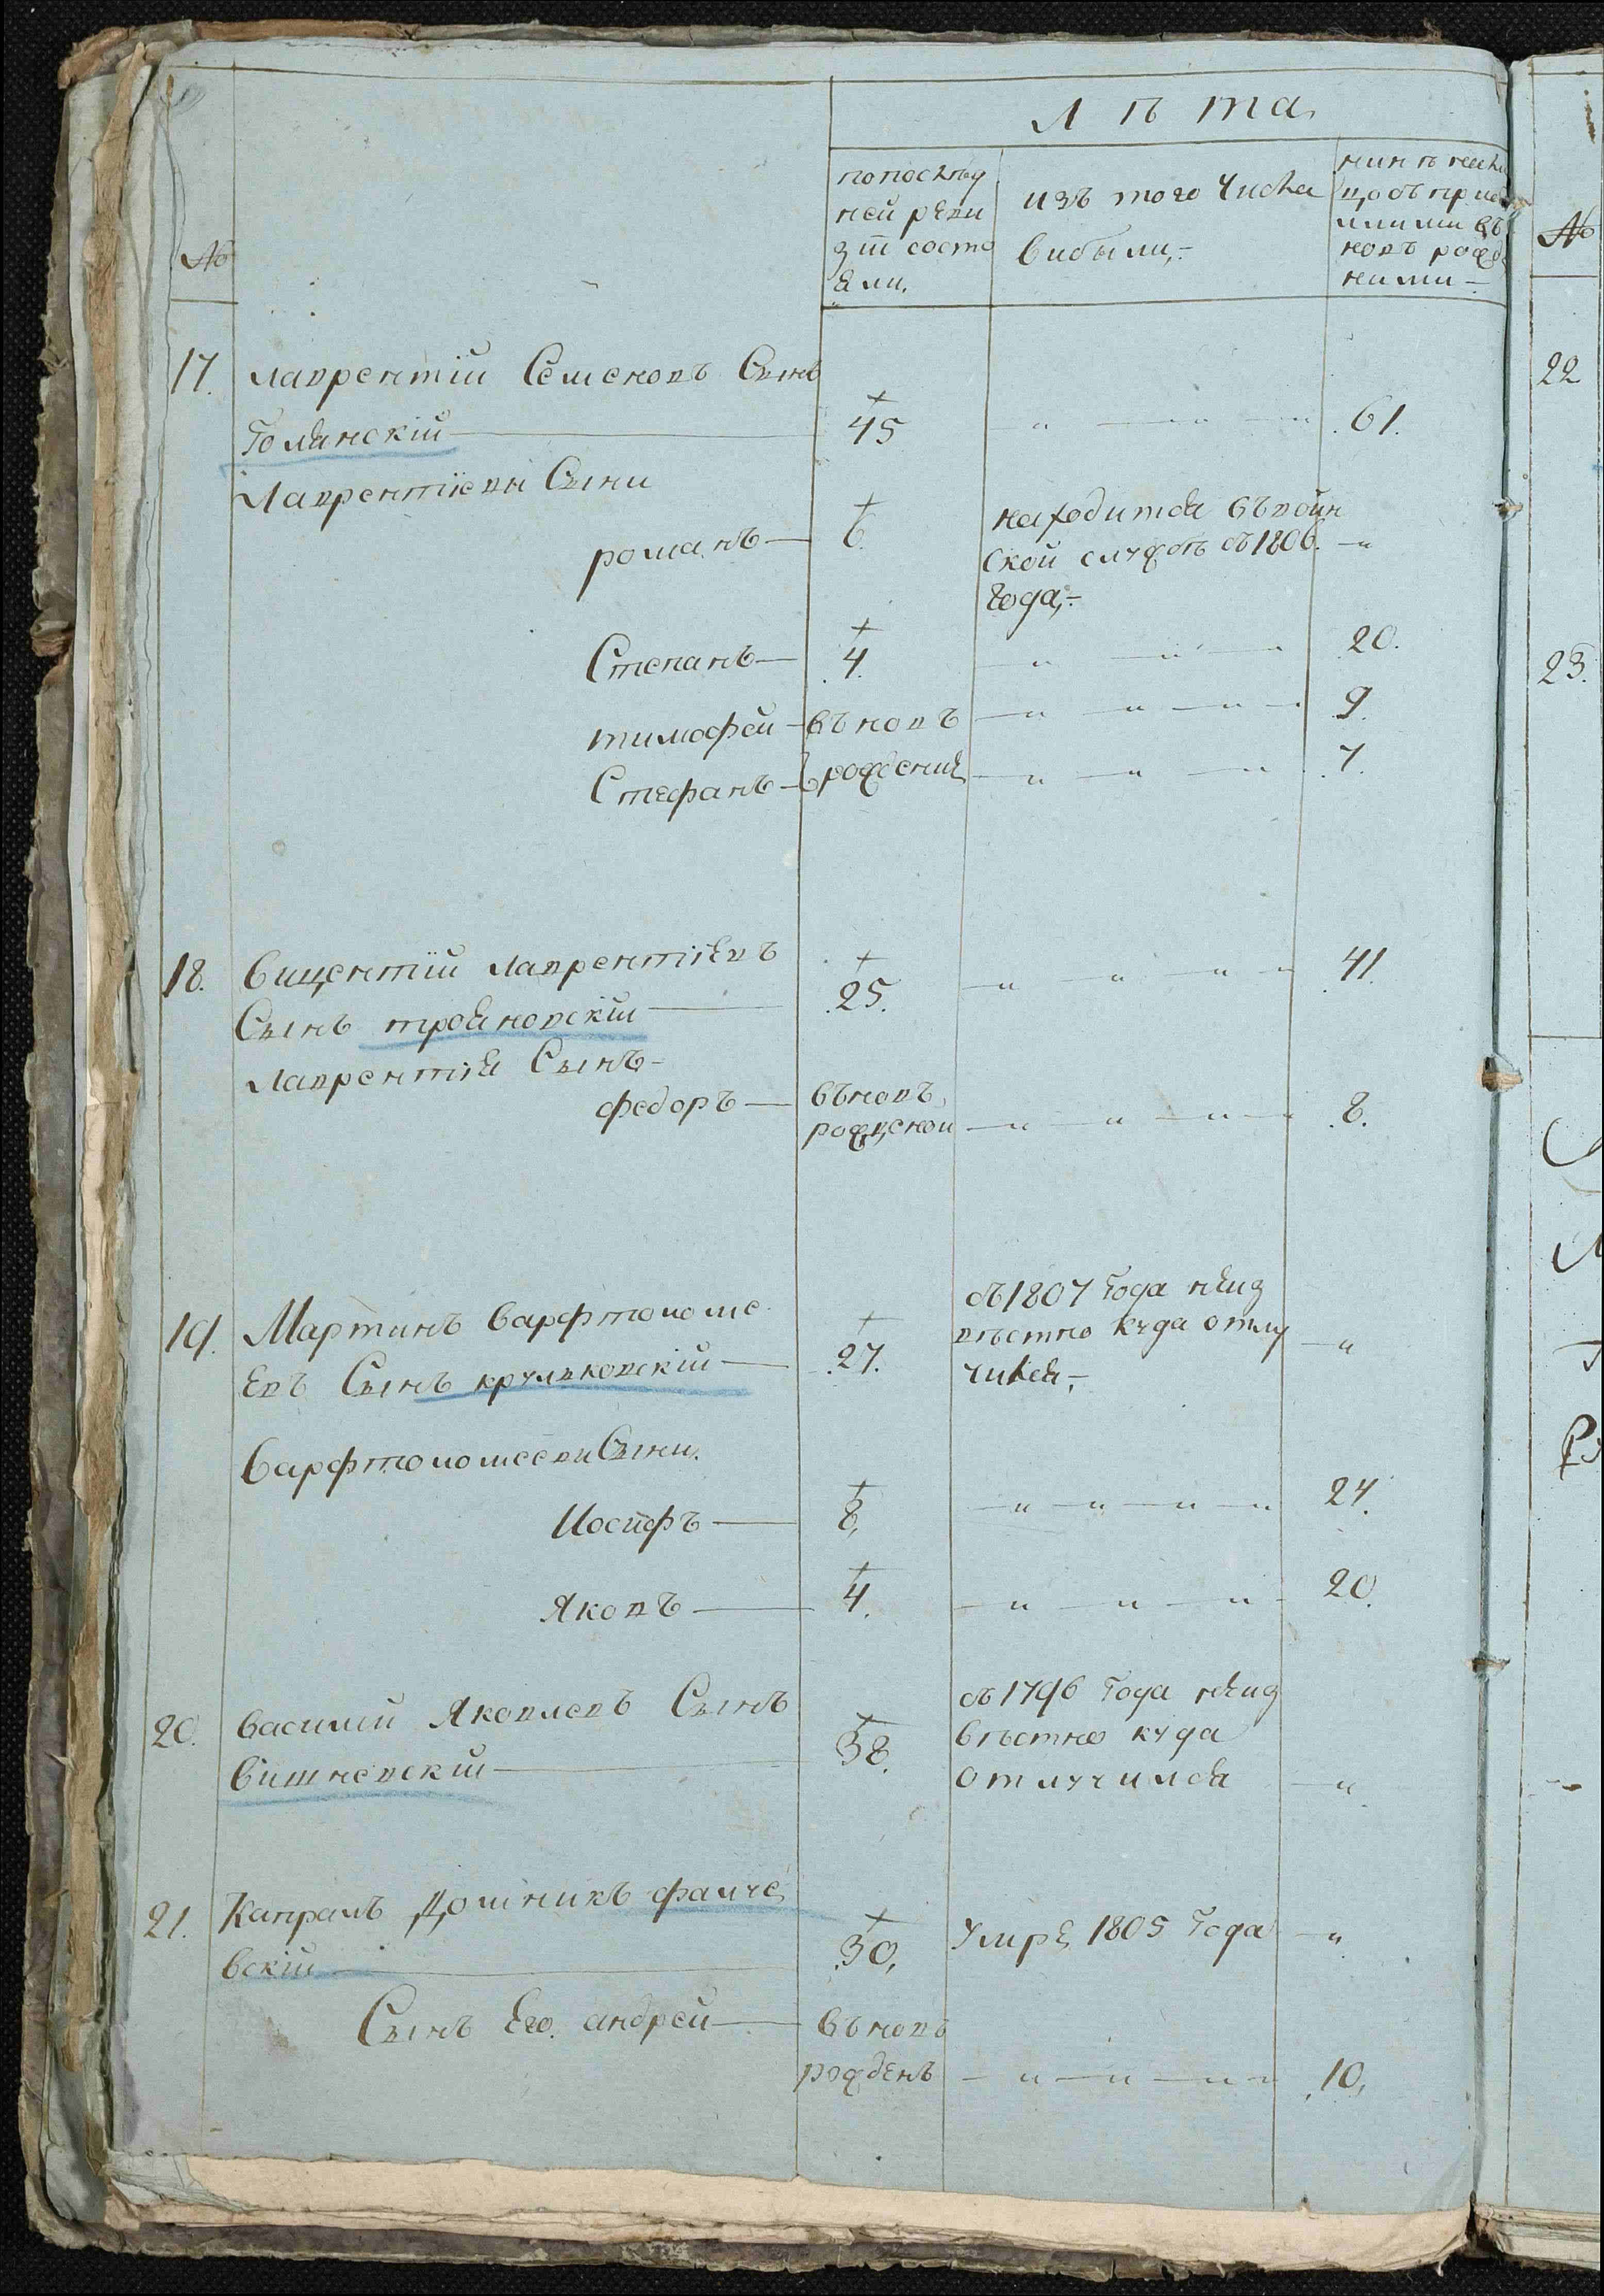 Лѣта
№
попослѣд
ней реви
зіи состо
яли.
изъ того числа
вибыли,-
нинѣ
новъ рожде
ними -
17. лаврентій Семеновъ Сынъ
Голянскій 45 61.
Лаврентіеви Сыни
романъ 6. находится въ воин
ской службѣ съ 1806.
года,-
Степанъ 4. 20.
тимофей въновъ 9.
Стефанъ рождение 7.
18. Вицентій лаврентіевъ
Сынъ трояновскій 25. 41.
Лаврентія Сынъ
федоръ въновъ
рожденой 8.
19. Мартинъ Варфтоломе
евъ Сынъ крульковскій 27. съ 1807 года неиз
вѣстно куда отлу
чился,-
Варфтоломееви Сыни.
Иосифъ 8, 24.
Яковъ 4. 20.
20. Василій Яковлевъ Сынъ
Вишневскій 38. съ 1796 года неиз
вѣстно куда
отлучился
21. Капралъ Доминикъ фалче
вскій 30, Умре 1805 года
Сынъ Его. андрей въновъ
рожденъ 10,
№
22
23.